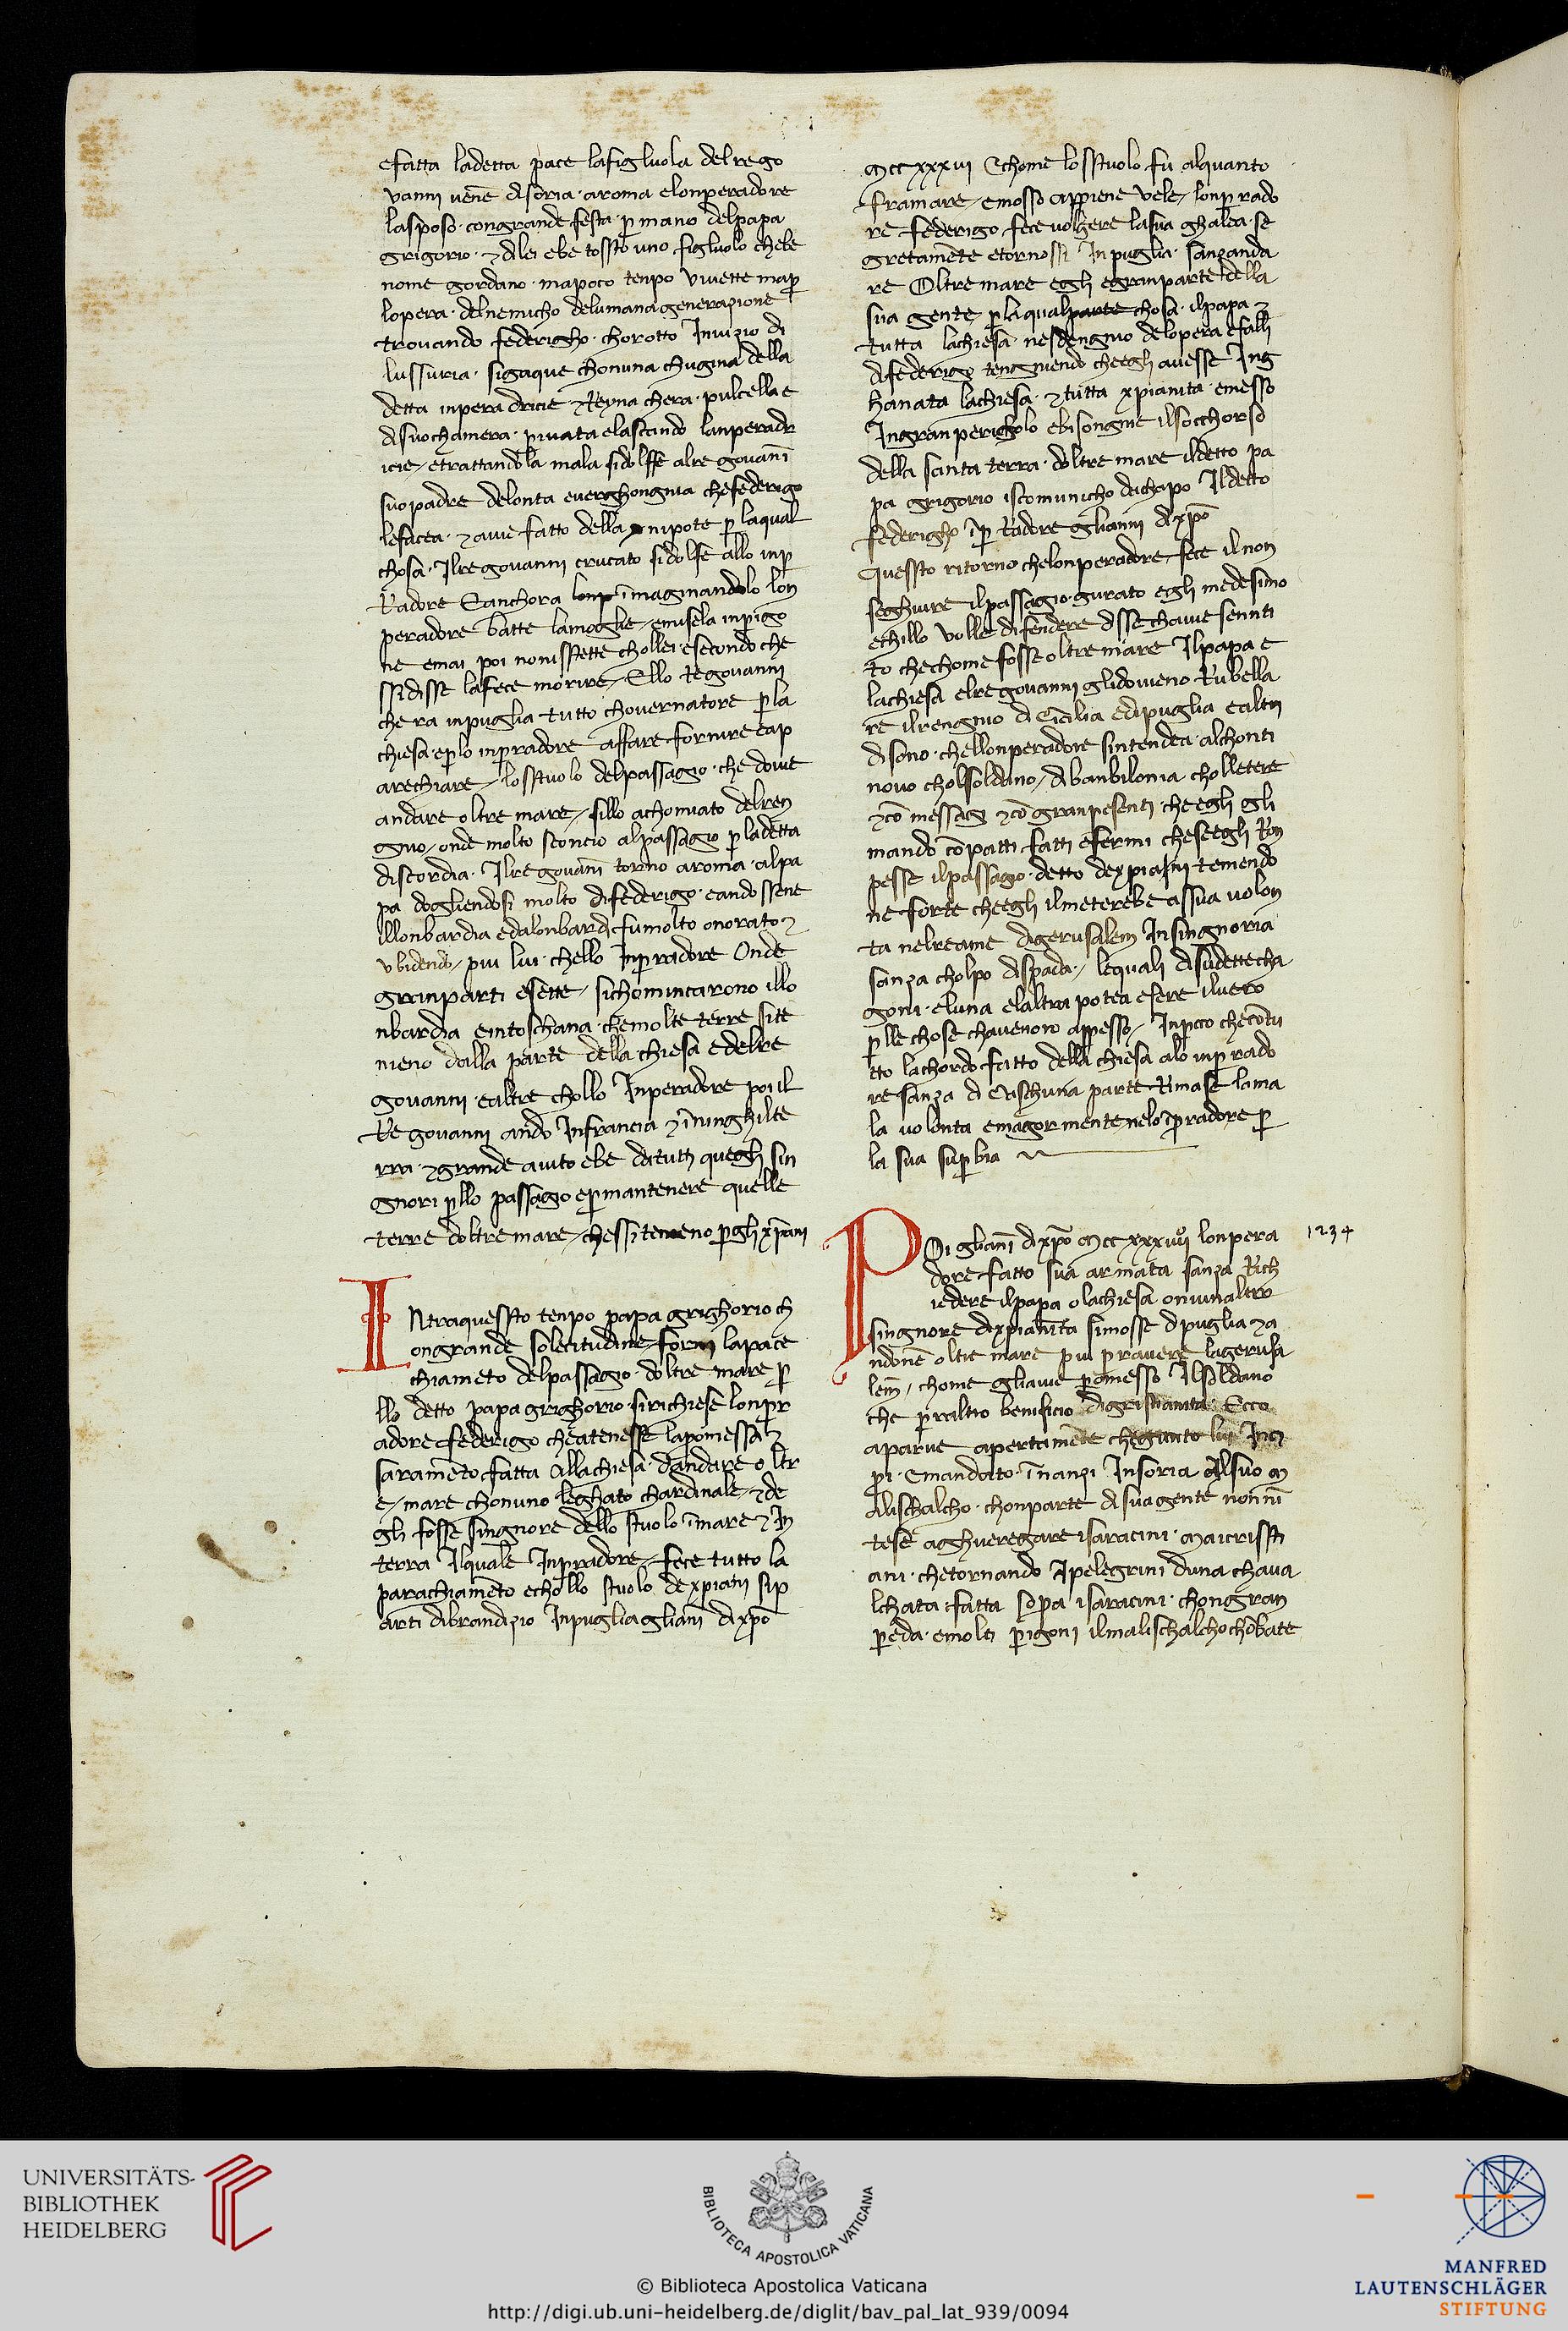 efatta ladetta pace lafigluola delrego
vanni uēne disoria · aroma elonperadore
lasposo · congrande festa · ꝑ mano delpapa
grigorio · ⁊ dilei ebe tossto uno figluolo chebe
nome gordano · mapoco tenpo viuette maꝑ
lopera · delnemicho delumana generazione
trouando federigho · chorotto Inuizio di
lussuria · sigaque chonuna chugina della
detta inpera dricie ⁊ Reyna chera · pulcella e
disuochamera · priuata elasciando lanperadr
icie / etrattandola mala sidolsse alre gouanī
suopadre delonta euerghongnia chefederigo
lefacea · ⁊ auie fatto della nipote ꝑ laqual
chosa · Ilregouanni crucato sidolse allo inꝑ
Radore Eanchora lonp īmaginandolo lon
peradore batte lamoglie / emisela inprigo
ne emai poi nonisstette chollei · esecondo che
ssidisse lafece morire / Ello re gouanni
chera inpuglia tutto chouernatore ꝑ la
chiesa · eꝑlo inꝑradore affare fornire eap
arechiare / losstuolo delpassaggio · che douie
andare oltre mare / sillo achomiato delren
gnio / onde molto sconcio alpassagio ꝑ ladetta
discordia · Ilre gouanī torno aroma · alpa
pa dogliendosi molto difederigo · eandossene
illonbardia edalonbardi fumolto onorato ⁊
vbidendo / piu lui · chello Inꝑradore Onde
granparti esette / sichominciarono illo
nbardia eintoschana · chemolte terre site
nieno dalla parte della chiesa e delre
gouanni · ealtre chollo Inperadore poi il
Re gouanni ando Infrancia ⁊ īninghilte
rra · ⁊ grande aiuto ebe datutti quegli sin
gnori ꝑllo passagio eꝑ mantenere quelle
terre doltremare / chessi tenieno ꝑ gli xp̄iani
INtraquessto tenpo papa grighorio ch
ongrande solecitudine forni lapare
chiameto delpassagio · doltre mare ꝑ
llo detto papa grighorio · sirichiese lonꝑr
adore federigo cheatenesse lapromessa ⁊
saramēto fatta Allachiesa · dandare oltr
e / mare chonuno leghato chardinale / ⁊ de
gli fosse singnore dello stuolo īmare ⁊ In
terra Ilquale Inpradore / fece tutto la
parachiamēto echollo stuolo de xpiani sip
arti dibrandizio Inpuglia gliani dixp̄o
Mccxxxvi Echome losstuolo fu alquanto
framare / emosso appiene vele / lonꝑrado
re federigo fece uolgere lasua ghalea · se
gretamēte etornossi Inpuglia · sanzanda
re Oltremare egli egranparte della
sua gente ꝑ laqualparte chosa · ilpapa ⁊
tutta lachiesa nesdengnio delopera efalli
difederigo tengniendo cheegli auesse Ing
hanata lachiesa · ⁊ tutta xpianita · emesso
Ingran perigholo ebisongnie ilsocchorso
della santa terra · doltre mare ildetto pa
pa grigorio iscomunicho dachapo Ildetto
federigho īꝑRadore glianni dixp̄o
Quessto ritorno chelonperadore / fece il non
seghuire ilpassagio · gurato egli medesimo
echillo volle difendere disse chauie sentti
to chechome fosse oltremare Ilpapa e
lachiesa elregouanni glidouieno Rubella
re il rengnio di Cicilia edipuglia ealtri
disono · chellonperadore sintendea · alchonti
nouo cholsoldano / dibanbilonia cholletere
⁊ cō messagi ⁊ cō granpesenti · cheegli gli
mando cō patti fatti efermi cheseegli Ron
pesse ilpassagio · detto dexpiani temendo
ne forte cheegli ilmeterebe assua uolon
ta nelreame digerusalem Insingnoria
sanza cholpo dispada / lequali disudettecha
goni · eluna elaltra potea esere iluero
ꝑlle chose chauenoro appresso / Inpcio checōtu
tto lachordo fatto della chiesa alo inꝑrado
re sanza di Ciaschuna parte Rimase lama
la uolonta emagormente nelo īꝑradore ꝑ
la sua suꝑbia
POi gliani dixp̄o Mccxxxiiii lonpera
dore fatto sua armata sanza Rich
iedere ilpapa o lachiesa oniunaltro
singnore dixpianita simosse dipuglia ⁊ a
ndōne oltre mare piu ꝑ rauere lagerusa
lem̄ / chome gliauie ꝑomesso Ilsoldano
che ꝑraltro benificio digristianita · Ecco
aparue apertamēte chequanto lui Inci
pri · Emandato · īnanzi Insoria Alsuo m
aliscalcho · chonparte disuagente nonni
tese aghueregare isaracini · Maicrissti
ani · chetornando Ipelegrini duna chaua
lchata fatta sopra isaracini · chongran
preda · emolti prigoni ilmalischalcho chōbate
1234
UNIVERSITÄTS-
BIBLIOTHEK
HEIDELBERG
BIBLIOTECA APOSTOLICA VATICANA
© Biblioteca Apostolica Vaticana
http://digi.ub.uni-heidelberg.de/diglit/bav_pal_lat_939/0094
MANFRED
LAUTENSCHLÄGER
STIFTUNG